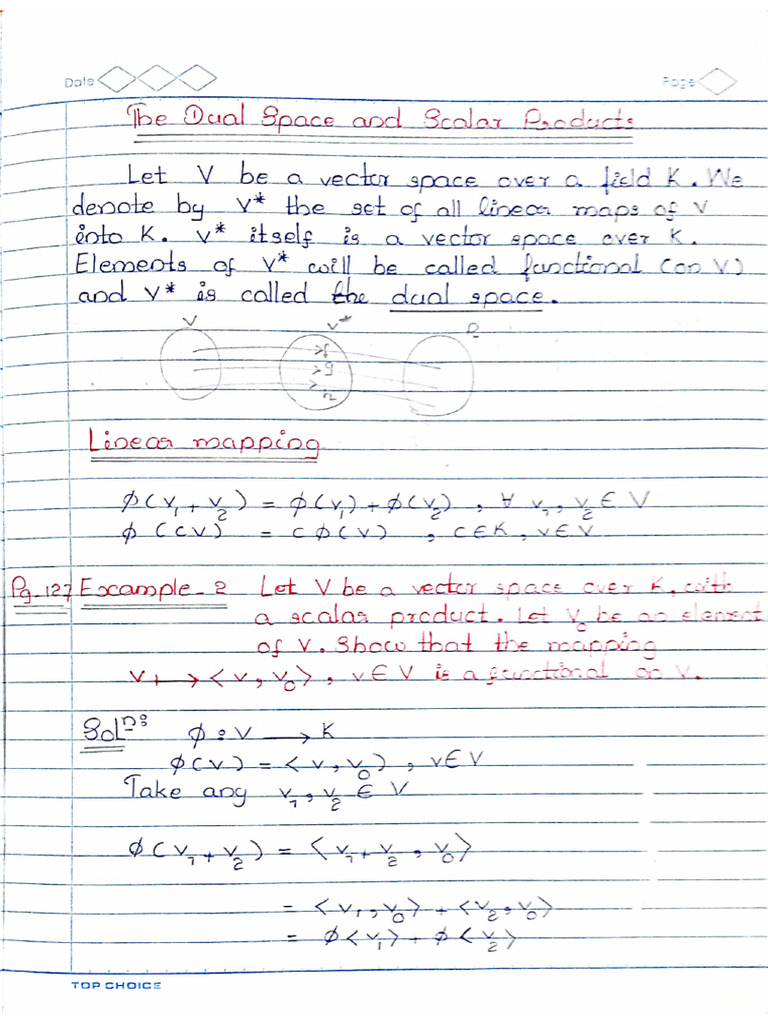 Date Page
The Dual Space and Scalar Products
Let V be a vector space over a field K. We
denote by V* the set of all linear maps of V
into K. V* itself is a vector space over K.
Elements of V* will be called functional (on V)
and V* is called the dual space.
V V*
f
g
Linear mapping
ϕ(v₁ + v₂) = ϕ(v₁) + ϕ(v₂) , ∀ v₁, v₂ ∈ V
ϕ (cv) = cϕ(v) , c∈K, v∈V
Pg-127 Example-2 Let V be a vector space over K, with
a scalar product. Let v₀ be an element
of V. Show that the mapping
v ↦ <v, v₀> , v∈V is a functional on V.
Solⁿ: ϕ : V → K
ϕ(v) = <v, v₀> , v∈V
Take any v₁, v₂ ∈ V
ϕ(v₁ + v₂) = <v₁ + v₂, v₀>
= <v₁, v₀> + <v₂, v₀>
= ϕ<v₁> + ϕ<v₂>
TOP CHOICE